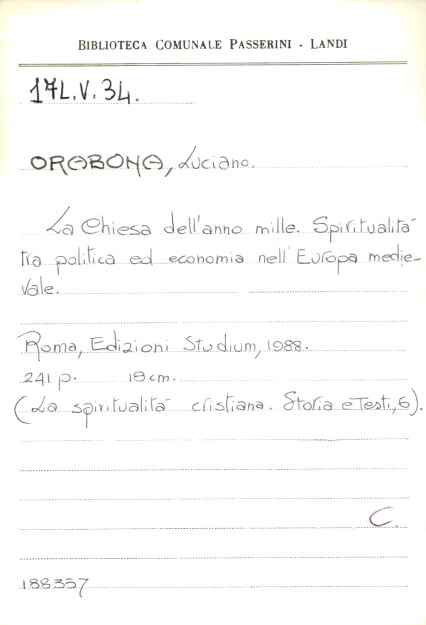 BIBLIOTECA COMUNALE PASSERINI - LANDI
17L.V.34.
ORABONA, Luciano.
La Chiesa dell'anno mille. Spiritualità
tra politica ed economia nell'Europa medie-
vale.
Roma, Edizioni Studium, 1988.
241 p. 18 cm.
(La spiritualità cristiana. Storia e Testi, 6).
C.
188357